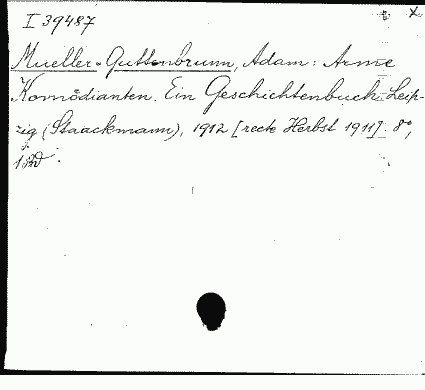 I 39487
Mueller-Guttenbrunn, Adam: Arme
Komödianten. Ein Geschichtenbuch. Leip-
zig (Staackmann), 1912 [recte Herbst 1911]. 8°,